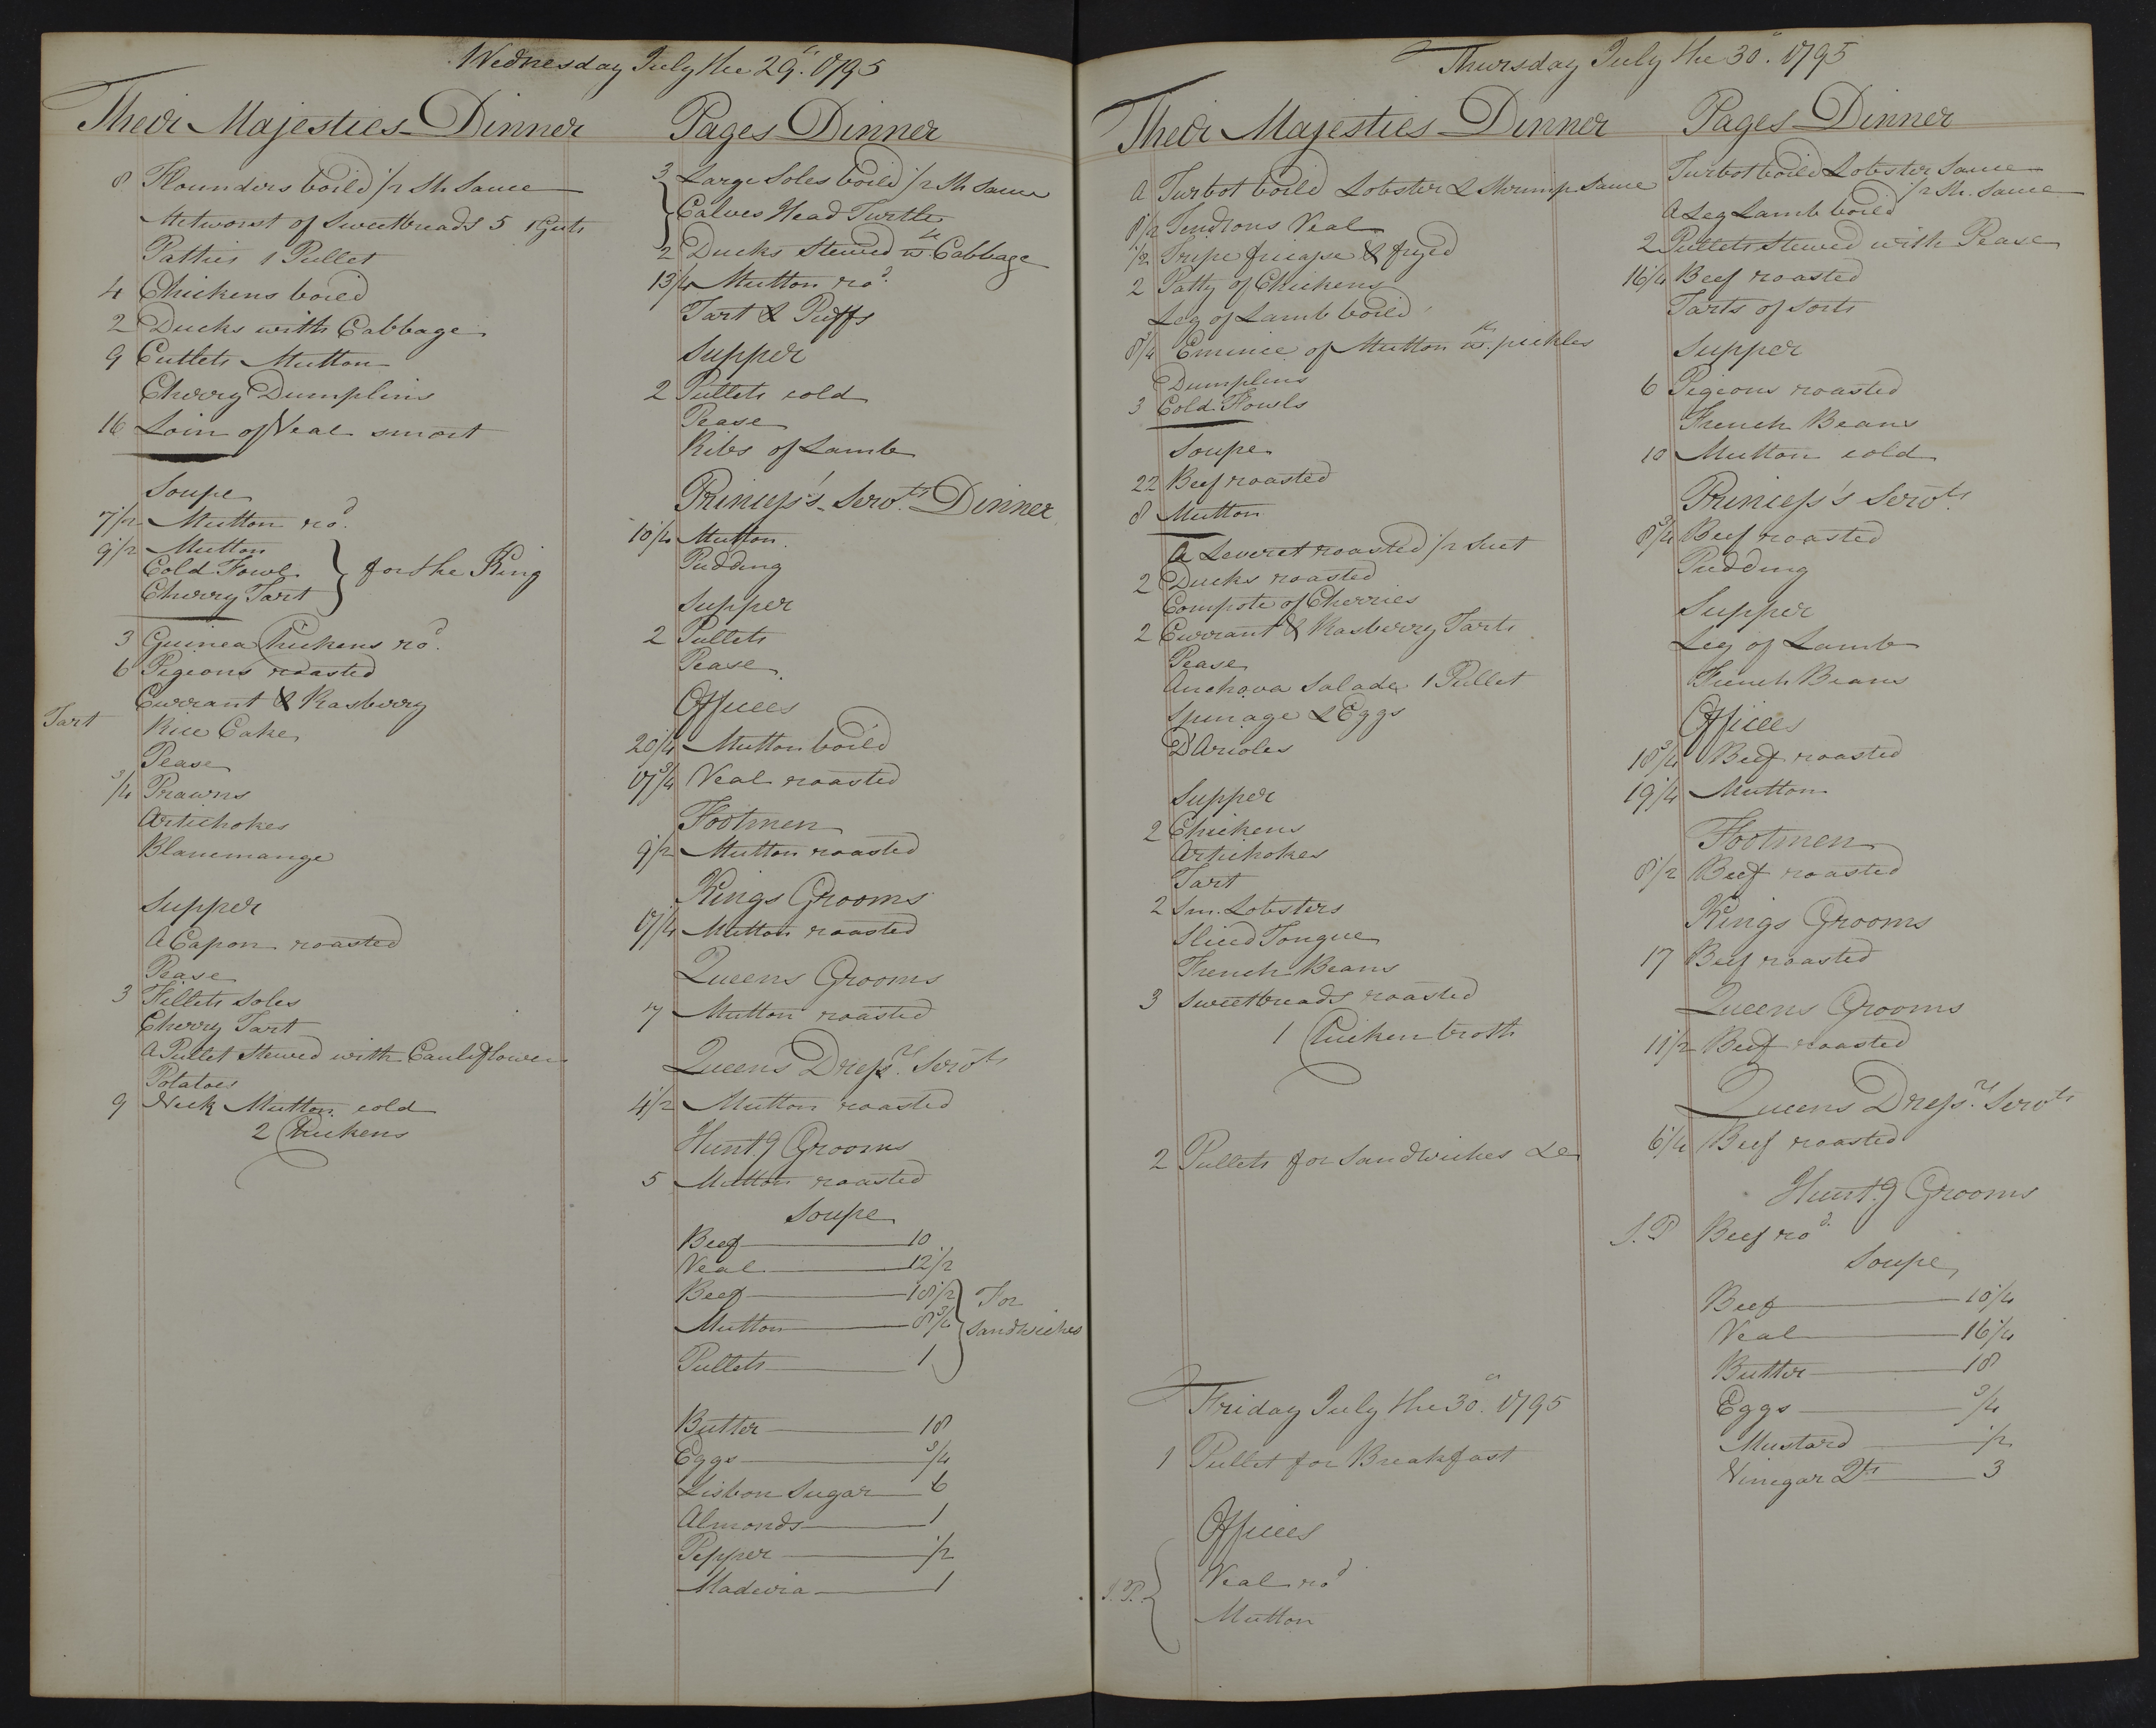 Wednesday July the 29th. 1795
Their Majesties Dinner
8 Flounders boild 1/2 Sh Sauce
Metworst of Sweetbreads 5 1 Guts
Patties 1 Pullet
4 Chickens boild
2 Ducks with Cabbage
9 Cutlets Mutton
Cherry Dumplins
16 Loin of Veal smort
Soupe
7 1/2 Mutton rod.
9 1/2 Mutton
Cold Fowl } for the King
Cherry Tart
3 Guinea Chickens rod.
6 Pigeons roasted
Currant & Rasberry
Tart
Rice Cake
Pease
3/4 Prawns
Artichokes
Blanemange
Supper
A Capon roasted
Pease
3 Fillets Soles
Cherry Tart
A Pullet Stewed with Cauliflower
Potatoes
9 Neck Mutton cold
2 Chickens
Pages Dinner
3 Large Soles boild 1/2 Sh Sauce
Calves Head Turtle
2 Ducks Stewed wth Cabbage
13 1/4 Mutton rod.
Tart & Puffs
Supper
2 Pullets cold
Pease
Ribs of Lamb
Princess's Servts. Dinner
10 1/4 Mutton
Pudding
Supper
2 Pullets
Pease
Offices
20 1/4 Mutton boild
17 3/4 Veal roasted
Footmen
9 1/2 Mutton roasted
Kings Grooms
17 1/4 Mutton roasted
Queens Grooms
7 Mutton roasted
Queens Dressrs. Servts
4 1/2 Mutton roasted
Huntg Grooms
5 Mutton roasted
Soupe
Beef 10
Veal 12 1/2
Beef 18 1/2
Mutton 8 3/4 } For Sandwiches
Pullets 1
Butter 18
Eggs 3/4
Lisbon Sugar 6
Almonds 1
Pepper 1/2
Madeira 1
Thursday July the 30th. 1795
Their Majesties Dinner
A Turbot boild Lobster & Shrimp Sauce
8 1/2 Tendrons Veal
1/2 Tripe fricasse & fryed
2 Patty of Chickens
Leg of Lamb boild
8 3/4 Emince of Mutton wth. pickles
Dumplins
3 Cold Fowls
Soupe
22 Beef roasted
8 Mutton
A Leveret roasted 1/2 Suet
2 Ducks roasted
Compote of Cherries
2 Currant & Rasberry Tarts
Pease
Anchova Salade 1 Pullet
Spinage & Eggs
D'Arioles
Supper
2 Chickens
Artichokes
Tart
2 Sm. Lobsters
Sliced Tongue
French Beans
3 Sweetbreads roasted
1 Chicken broth
2 Pullets for Sandwiches &c
Friday July the 30th. 1795
1 Pullet for Breakfast
Offices
S.P. { Veal rod
Mutton
Pages Dinner
Turbot boild Lobster Sauce
1/2 Sh. Sauce
A Leg Lamb boild
2 Pullets Stewed with Pease
16 1/4 Beef roasted
Tarts of Sorts
Supper
6 Pigeons roasted
French Beans
10 Mutton cold
Princess's Servts.
8 3/4 Beef roasted
Pudding
Supper
Leg of Lamb
French Beans
Offices
18 3/4 Beef roasted
19 1/4 Mutton
Footmen
8 1/2 Beef roasted
Kings Grooms
17 Beef roasted
Queens Grooms
11 1/2 Beef roasted
Queens Dressrs. Servts
6 1/4 Beef roasted
Huntg Grooms
S.P Beef rod.
Soupe
Beef 10 1/4
Veal 16 1/4
Butter 18
Eggs 3/4
Mustard 1/2
Vinegar Qts 3